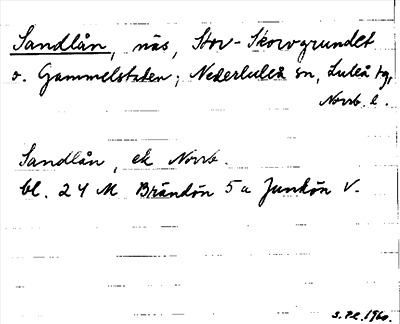 Sandlån, näs, Stor-Skorvgrundet
o. Gammelstaden; Nederluleå sn, Luleå tg,
Norrb. l.
Sandlån, ek Norrb.
bl. 24 M Brändön 5 a Junkön V.
S.Pl. 1960.